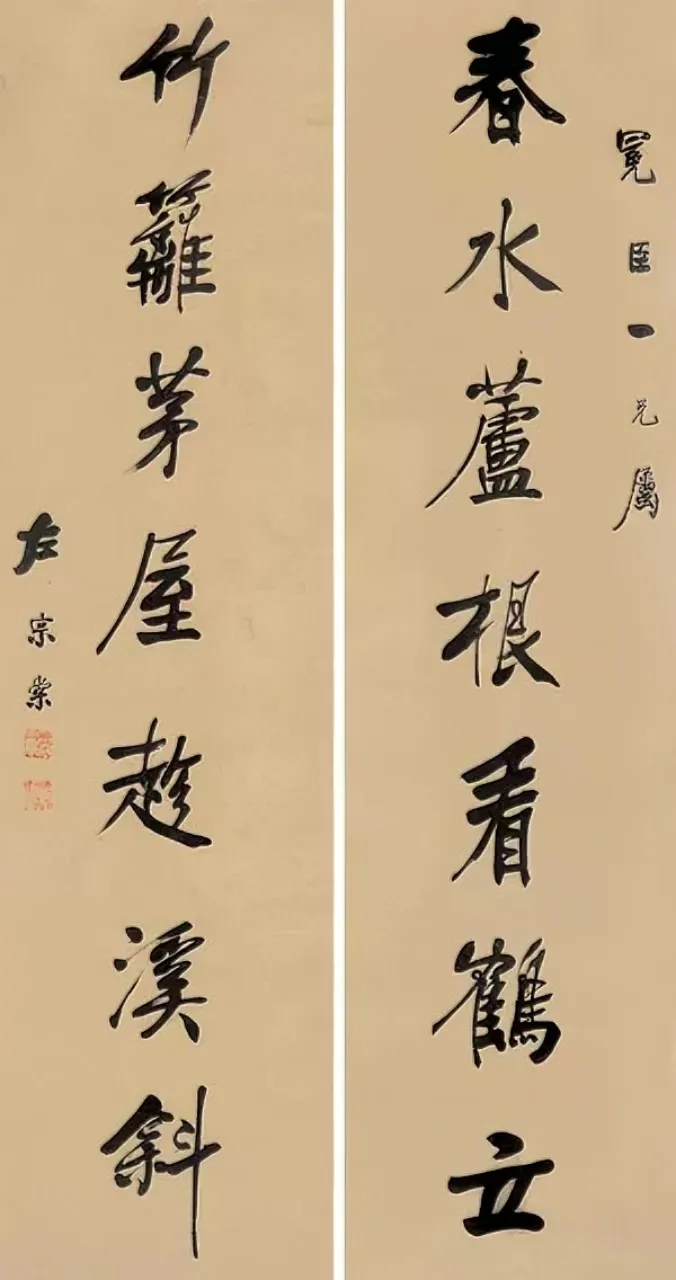 冕臣一兄屬
春水蘆根看鶴立
竹籬茅屋趁溪斜
左宗棠